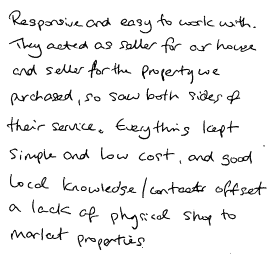 Responsive and easy to work with.
They acted as seller for our house
and seller for the property we
purchased, so saw both sides of
their service. Everything kept
simple and low cost, and good
local knowledge/contacts offset
a lack of physical shop to
market properties